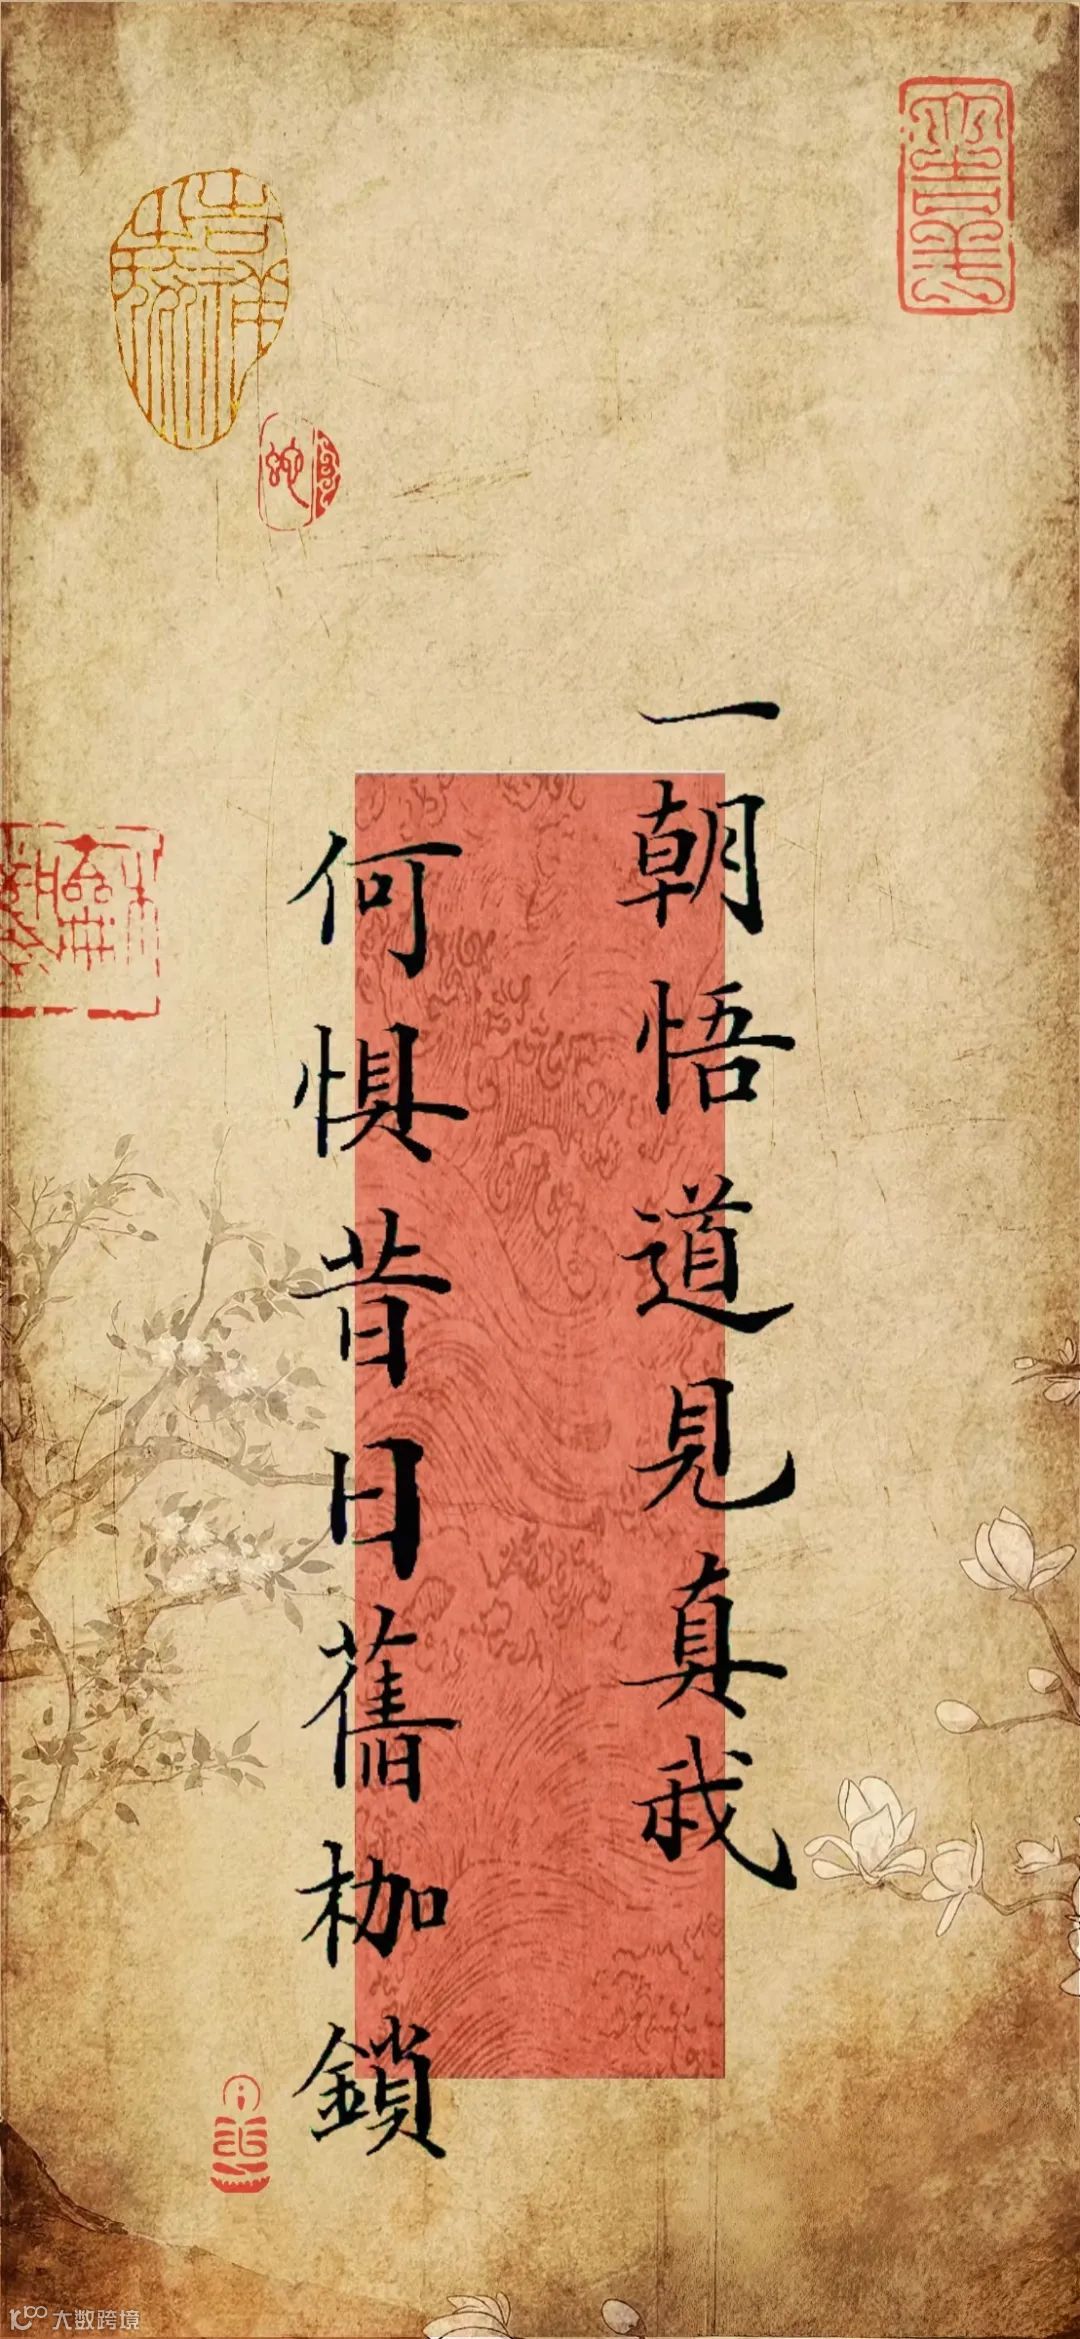 一朝悟道見真我
何惧昔日舊枷鎖
大数跨境